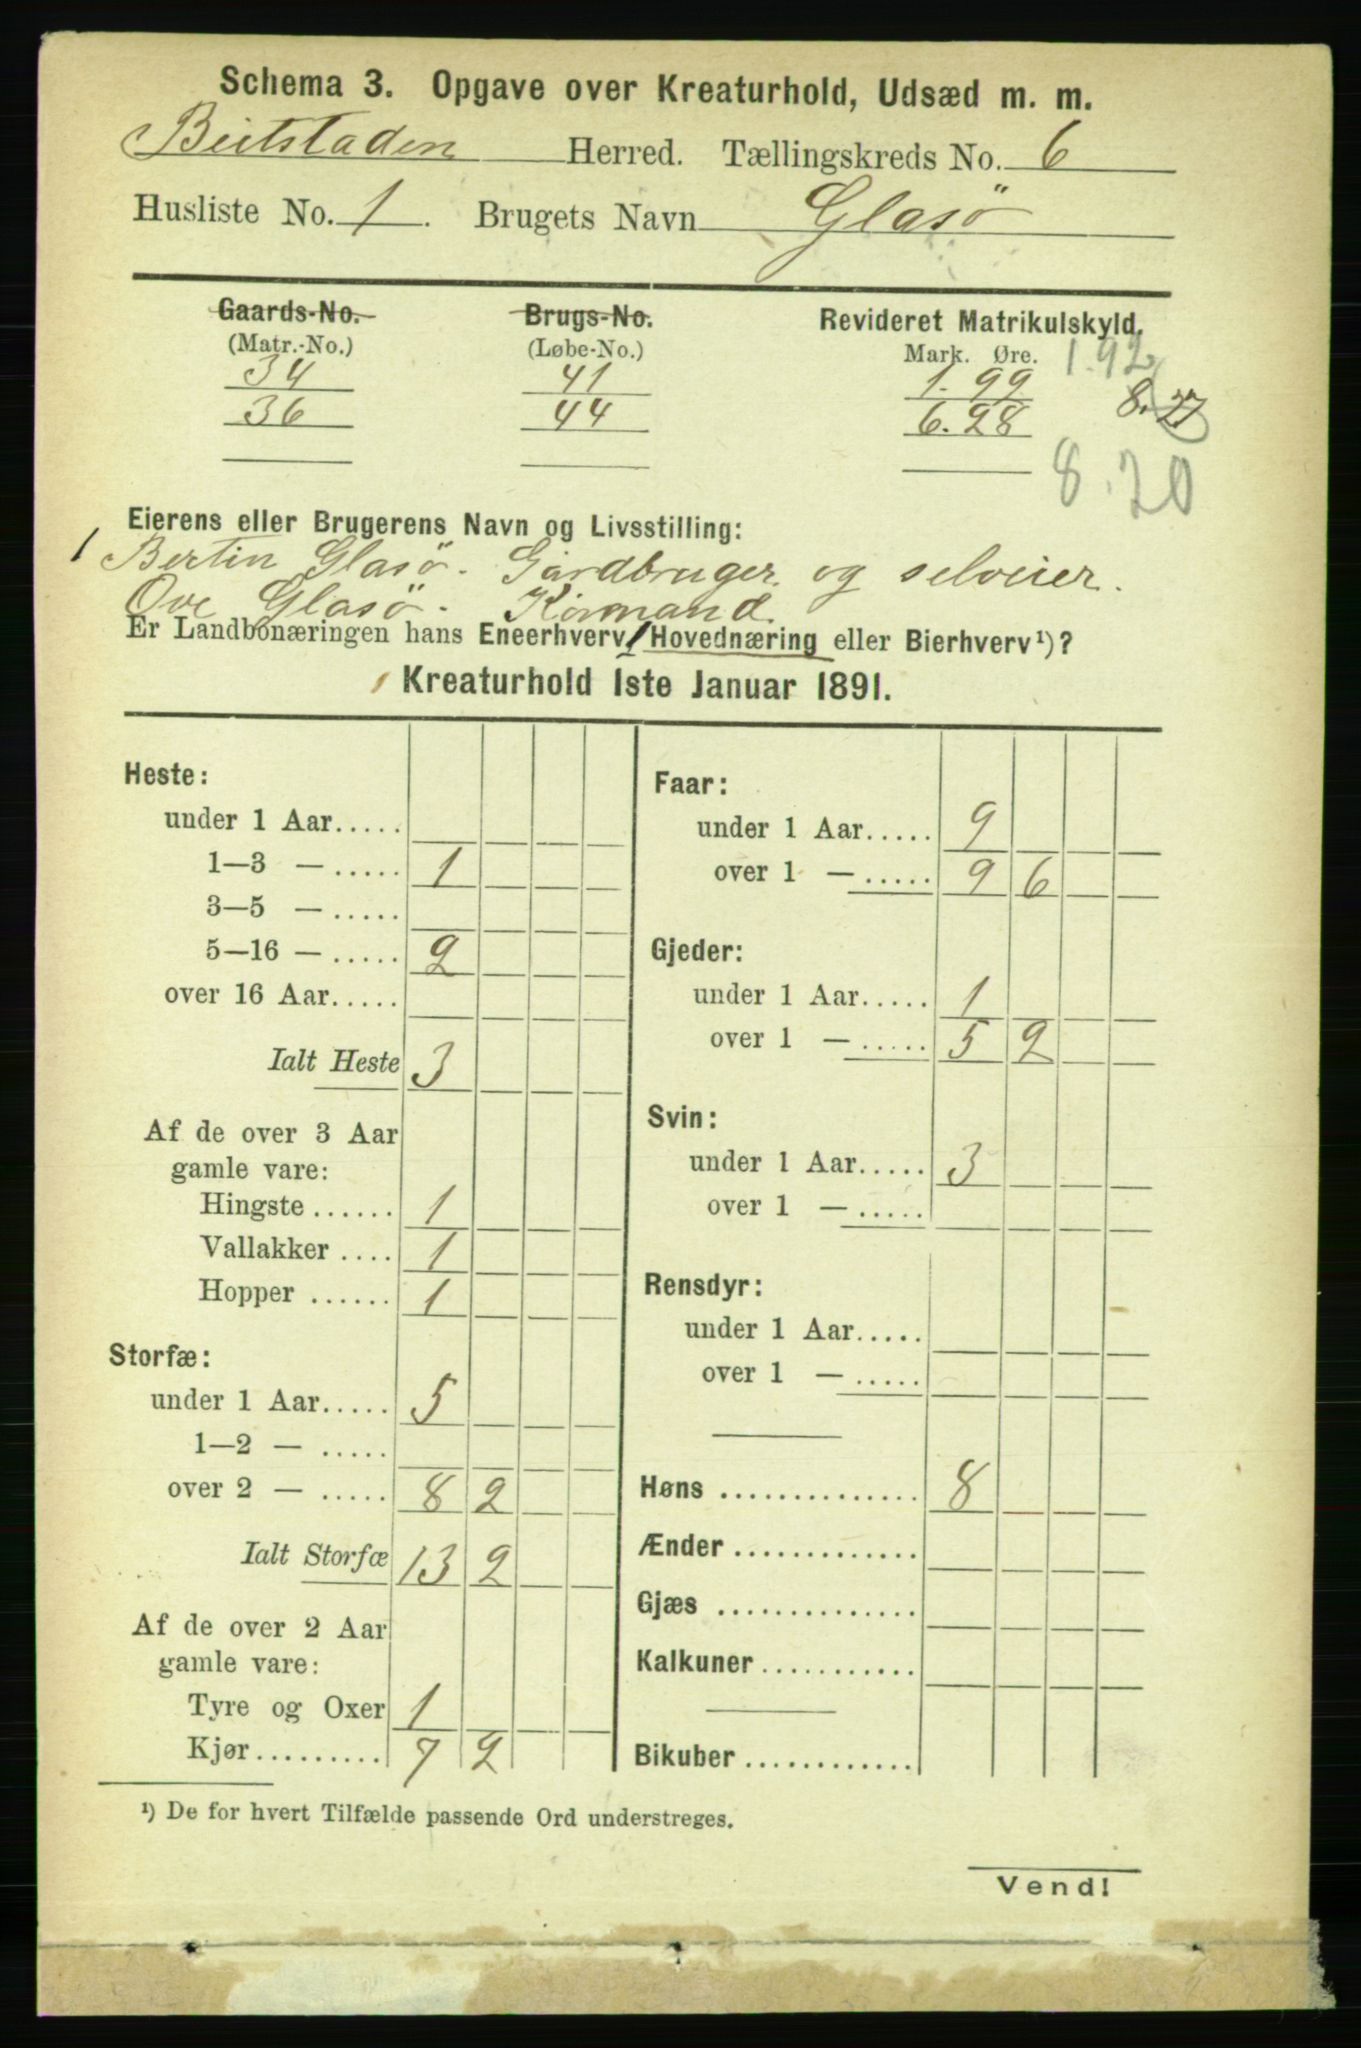 Schema 3. Opgave over Kreaturhold, Udsæd m. m.
Beitstaden Herred. Tællingskreds No. 6
Husliste No. 1. Brugets Navn Glasö
Gaards-No. Brugs-No. Revideret Matrikulskyld.
(Matr.-No.) (Løbe-No.) Mark. Øre. 1.92
34 41 1.99 8.27
36 44 6.28
8.20
Eierens eller Brugerens Navn og Livsstilling:
1 Bertin Glasö. Gårdbruger og selveier.
Ove Glasö. Kårmand.
Er Landbonæringen hans Eneerhverv, Hovednæring eller Bierhverv ¹)?
Kreaturhold 1ste Januar 1891.
Heste:
under 1 Aar.....
1—3 — ..... 1
3—5 — .....
5—16 — ..... 2
over 16 Aar.....
Ialt Heste 3
Af de over 3 Aar
gamle vare:
Hingste ...... 1
Vallakker .... 1
Hopper ...... 1
Storfæ:
under 1 Aar..... 5
1—2 — .....
over 2 — ..... 8 2
Ialt Storfæ 13 2
Af de over 2 Aar
gamle vare:
Tyre og Oxer 1
Kjør......... 7 2
Faar:
under 1 Aar..... 9
over 1 — ..... 9 6
Gjeder:
under 1 Aar..... 1
over 1 — ..... 5 2
Svin:
under 1 Aar..... 3
over 1 — .....
Rensdyr:
under 1 Aar.....
over 1 — .....
Høns .............. 8
Ænder .............
Gjæs ..............
Kalkuner ...........
Bikuber ............
¹) De for hvert Tilfælde passende Ord understreges.
Vend!